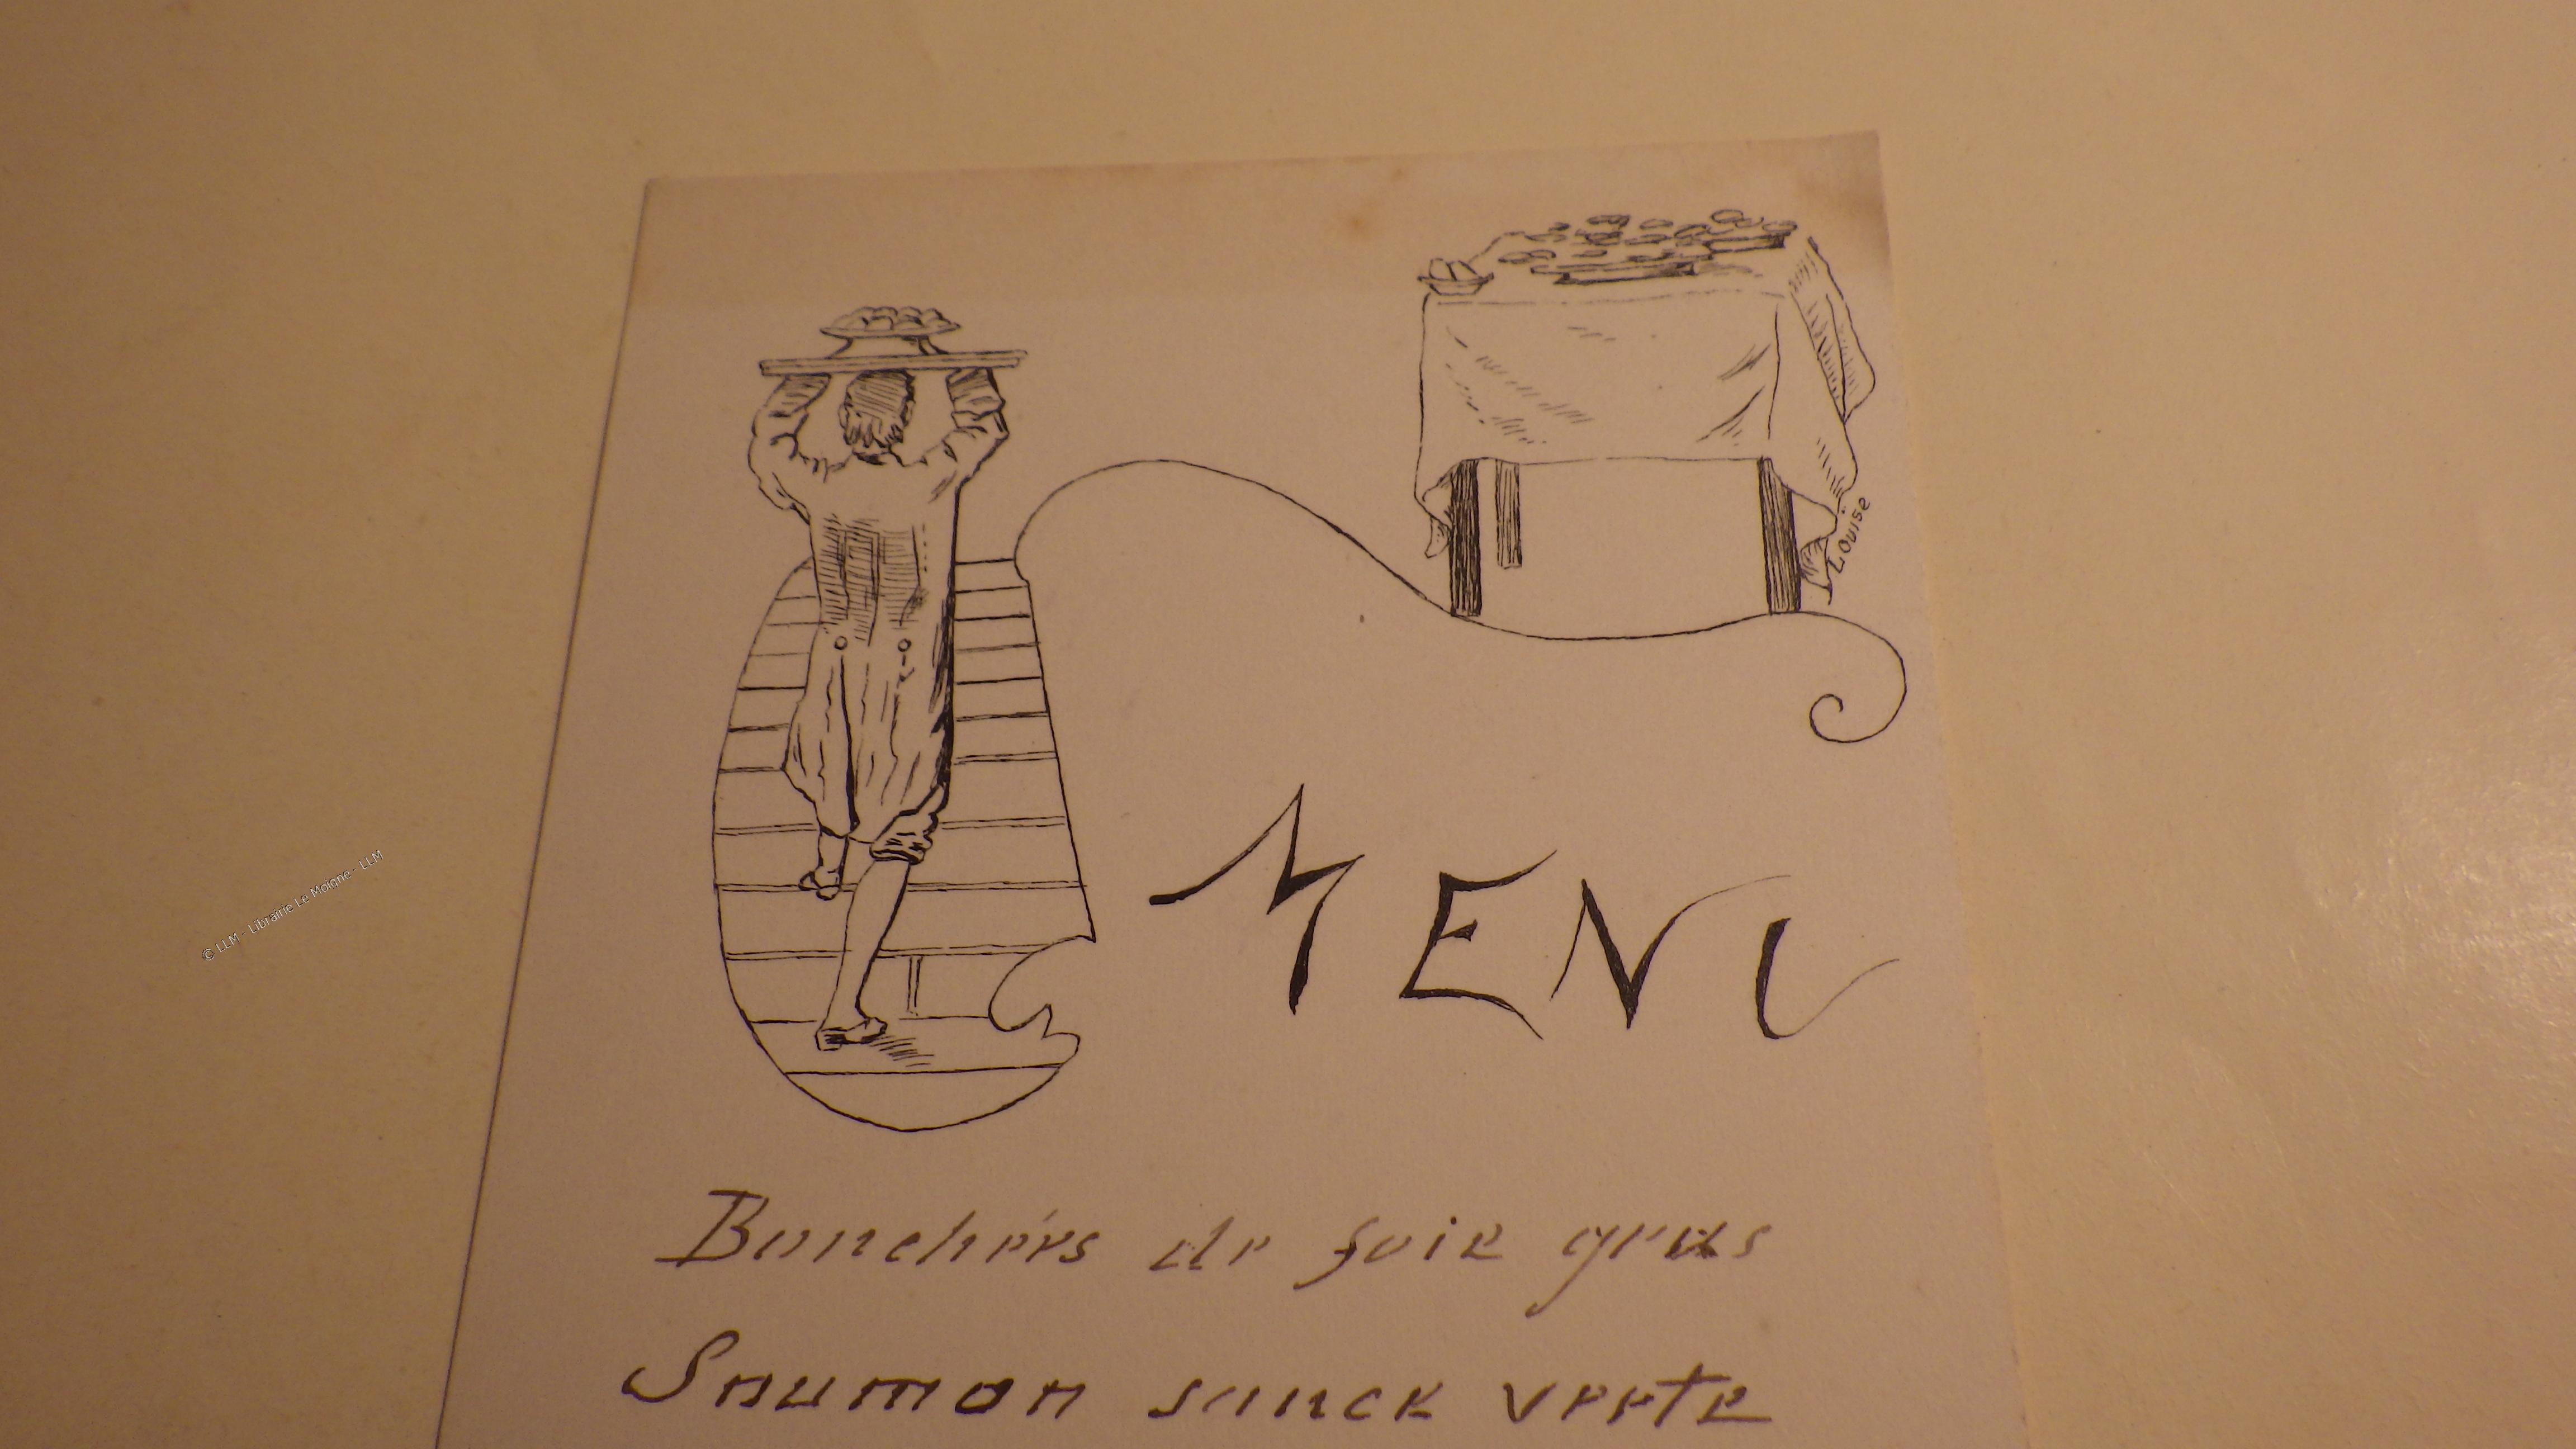 Louise
MENU
© LLM - Librairie Le Moigne - LLM
Bouchées de foie gras
Saumon sauce verte